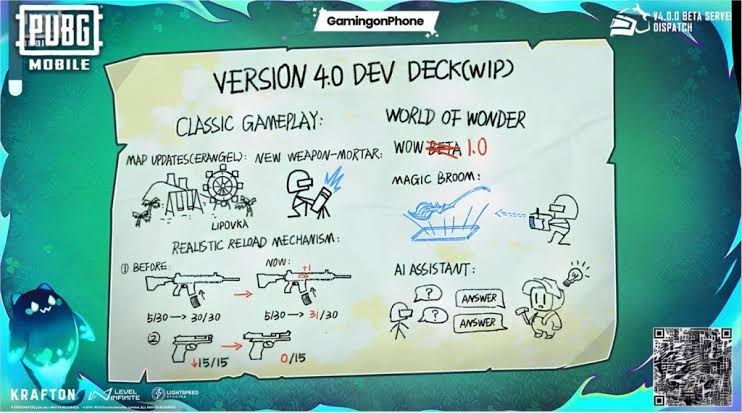 PUBG
MOBILE
GamingonPhone
V4.0.0 BETA SERVER
DISPATCH
VERSION 4.0 DEV DECK(WIP)
CLASSIC GAMEPLAY:
MAP UPDATES(ERANGEL):
NEW WEAPON-MORTAR:
LIPOVKA
REALISTIC RELOAD MECHANISM:
① BEFORE:
NOW:
+1
5/30 → 30/30
5/30 → 31/30
②
↓15/15
0/15
WORLD OF WONDER
WOW BETA 1.0
MAGIC BROOM:
AI ASSISTANT:
?
ANSWER
?
ANSWER
KRAFTON
LEVEL
INFINITE
LIGHTSPEED
STUDIOS